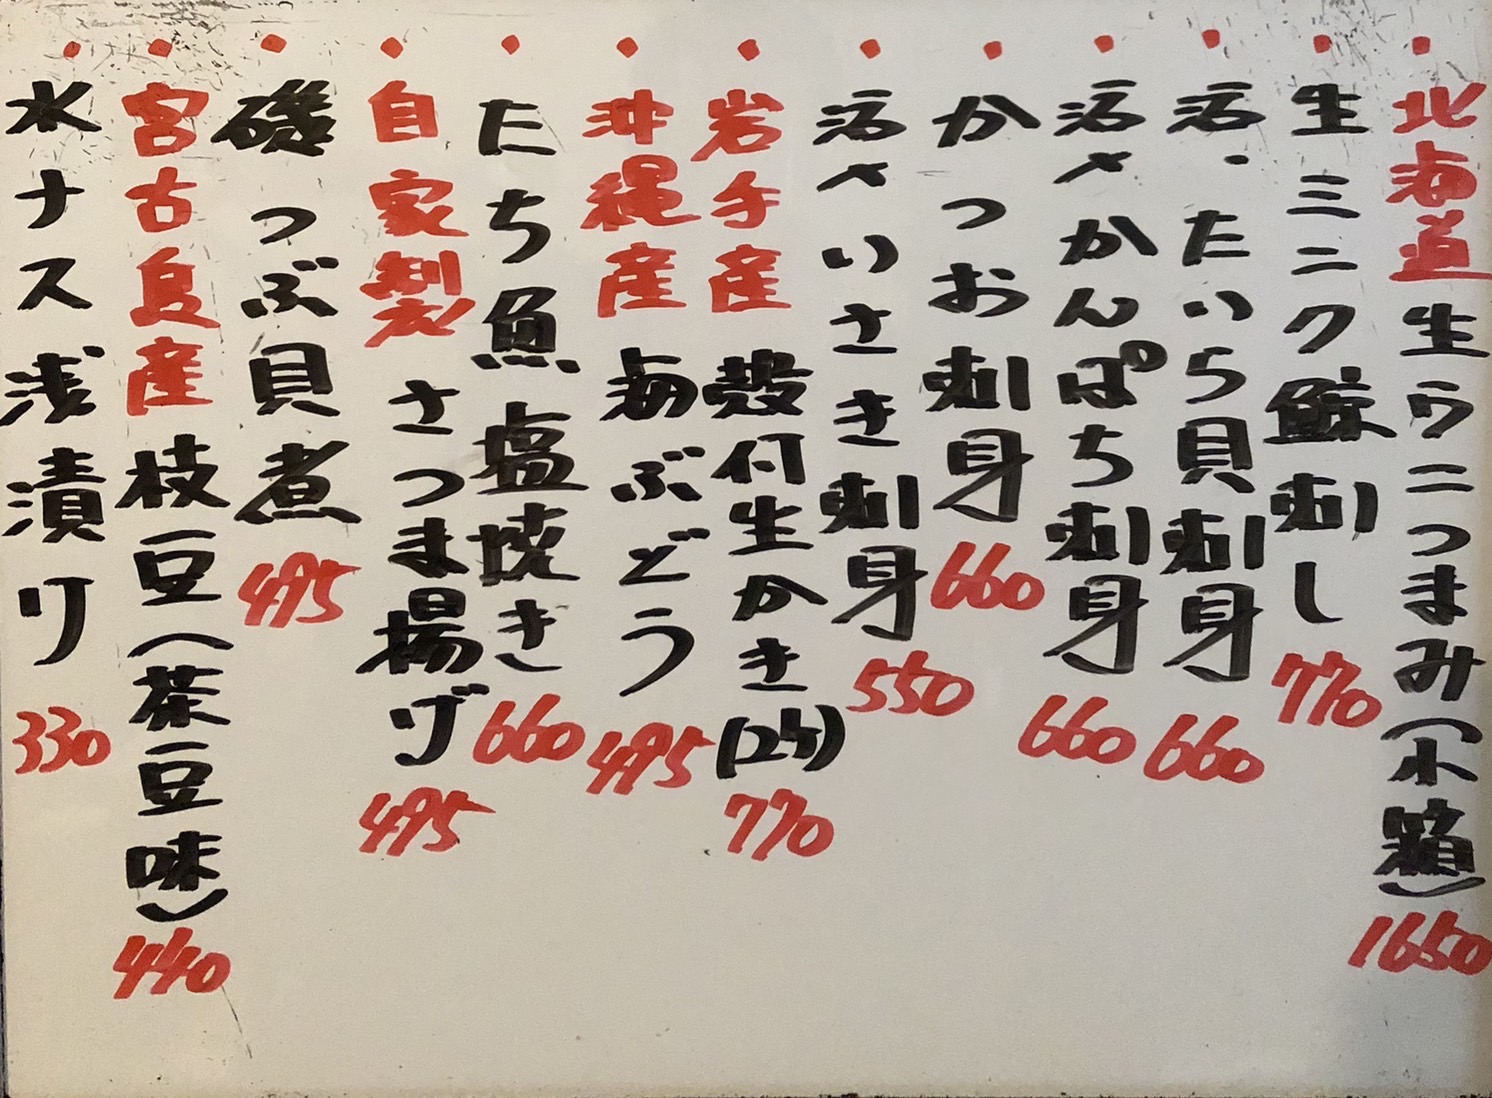 北海道生ウニつまみ(小箱) 1650
生ミニク鯨刺し 770
活・たいら貝刺身 660
活〆かんぱち刺身 660
かつお刺身 660
活〆いさき刺身 550
岩手産 殻付生かき(2ヶ) 770
沖縄産 海ぶどう 495
たち魚塩焼き 660
自家製 さつま揚げ 495
磯つぶ貝煮 495
宮古島産 枝豆(茶豆味) 440
水ナス浅漬り 330